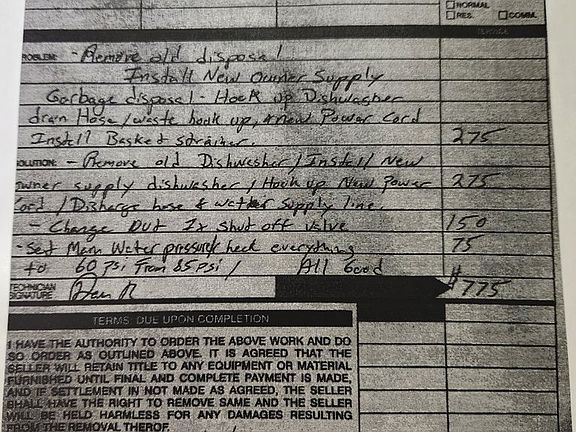 NORMAL
RES. COMM.
PROBLEM: - Remove old disposal
Install New Owner Supply
Garbage disposal - Hook up Dishwasher
drain Hose / waste hook up, + new Power Cord
Install Basket strainer. 275
SOLUTION: - Remove old Dishwasher / Install New
owner supply dishwasher / Hook up New Power 275
Cord / Discharge hose & water supply line.
- Change Out 1x shut off valve 150
- Set Main Water pressure / check everything 75
to 60 psi From 85 psi / All Good
TECHNICIAN SIGNATURE $775
TERMS: DUE UPON COMPLETION
I HAVE THE AUTHORITY TO ORDER THE ABOVE WORK AND DO
SO ORDER AS OUTLINED ABOVE. IT IS AGREED THAT THE
SELLER WILL RETAIN TITLE TO ANY EQUIPMENT OR MATERIAL
FURNISHED UNTIL FINAL AND COMPLETE PAYMENT IS MADE,
AND IF SETTLEMENT IN NOT MADE AS AGREED, THE SELLER
SHALL HAVE THE RIGHT TO REMOVE SAME AND THE SELLER
WILL BE HELD HARMLESS FOR ANY DAMAGES RESULTING
FROM THE REMOVAL THEROF.